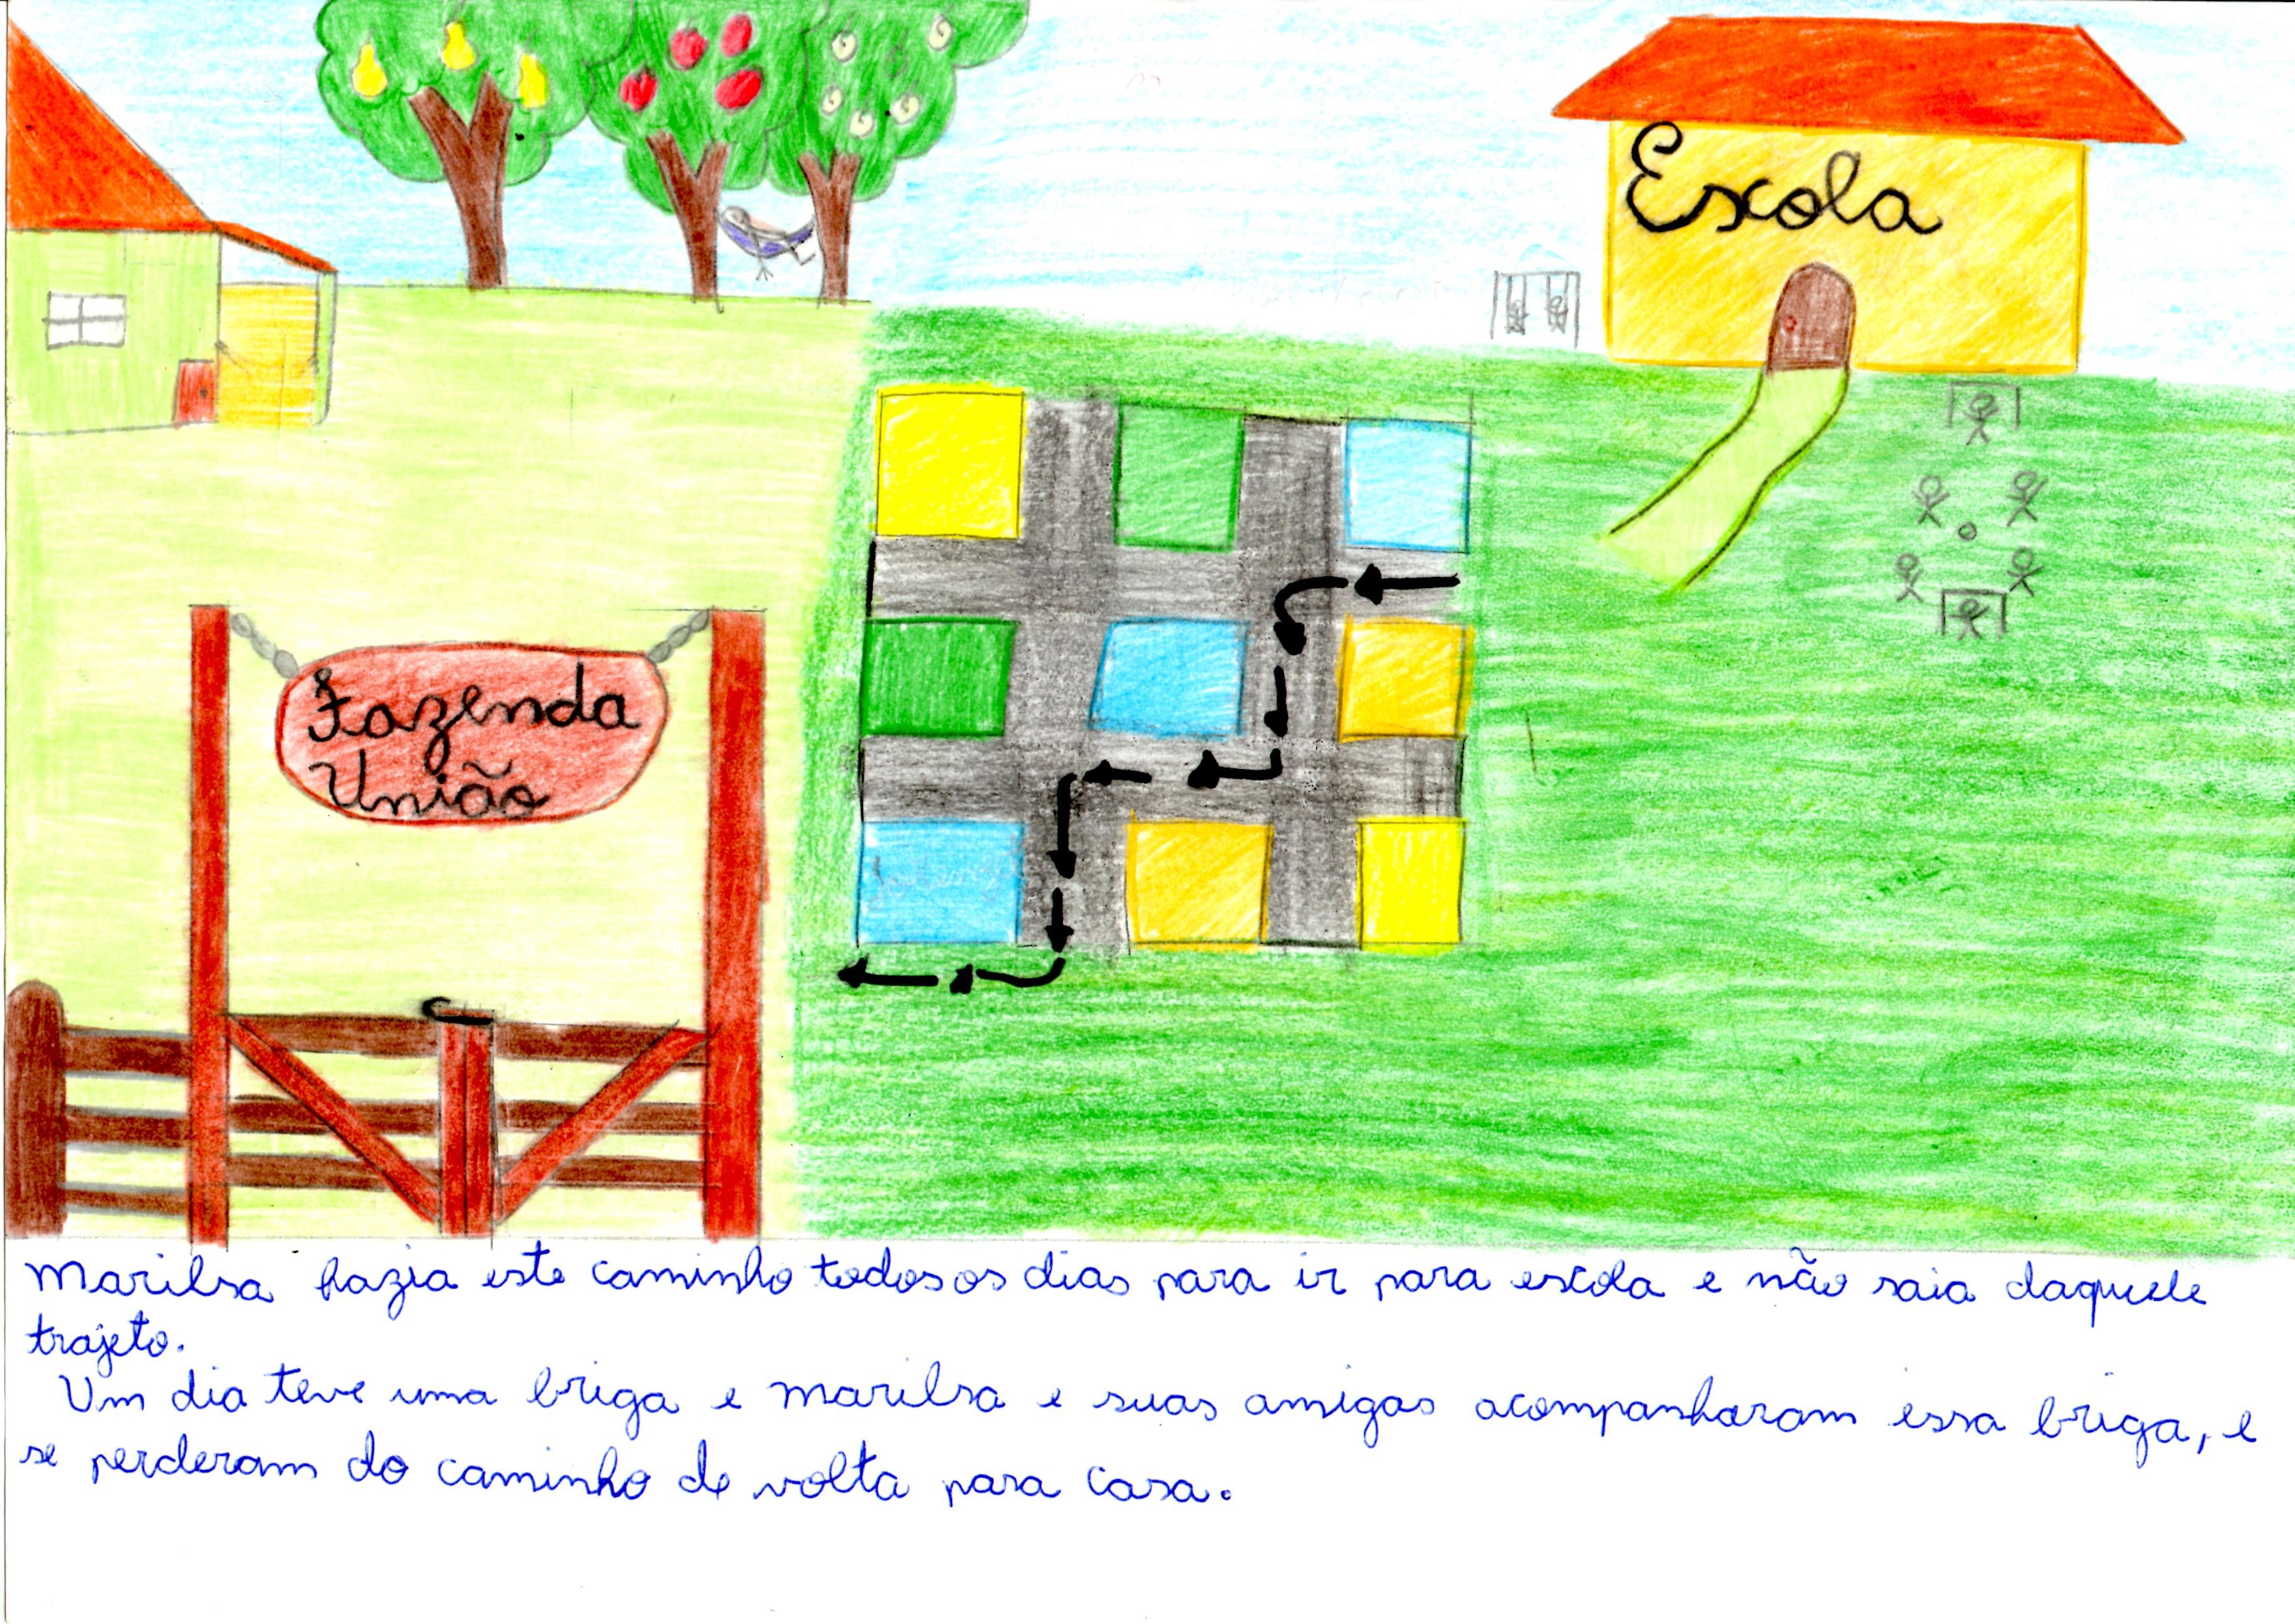 Escola
Fazenda
União
Marilsa fazia este caminho todos os dias para ir para escola e não saia daquele
trajeto.
Um dia teve uma briga e marilsa e suas amigas acompanharam essa briga, e
se perderam do caminho de volta para casa.